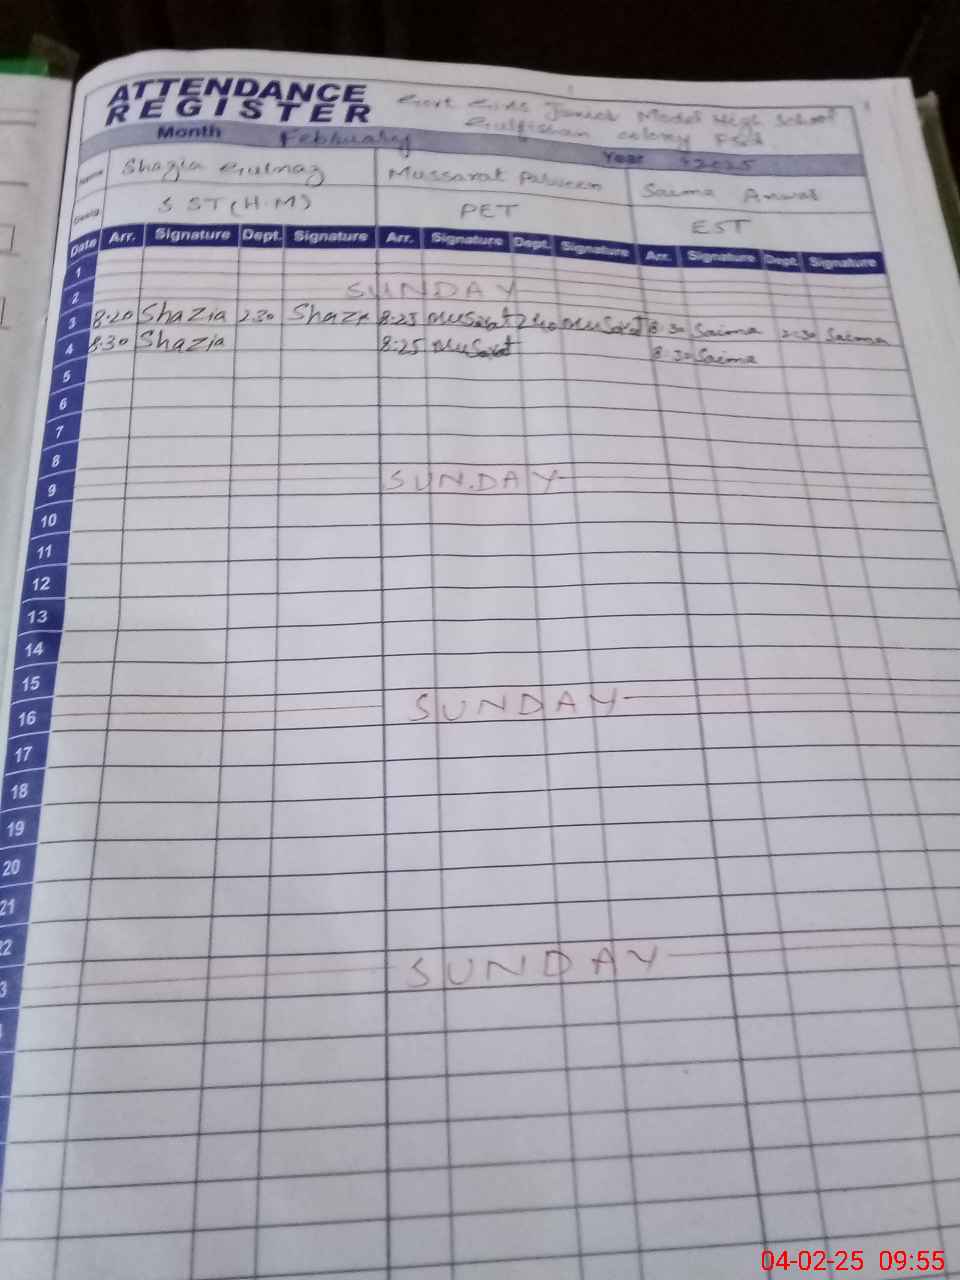 ATTENDANCE
REGISTER
Govt Girls Junior Model High School
Gulfishan colony Fsd
Month February Year 2025
Name Shazia Gulnaz Mussarat Parveen Saima Anwar
Desig SST (H.M) PET EST
Date Arr. Signature Dept. Signature Arr. Signature Dept. Signature Arr. Signature Dept. Signature
1
2 SUNDAY
3 8:20 Shazia 2:30 Shazia 8:25 Musarat 2:40 Musarat 8:30 Saima 2:30 Saima
4 8:30 Shazia 8:25 Musarat 8:30 Saima
5
6
7
8
9 SUNDAY
10
11
12
13
14
15
16 SUNDAY
17
18
19
20
21
22
3 SUNDAY
04-02-25 09:55